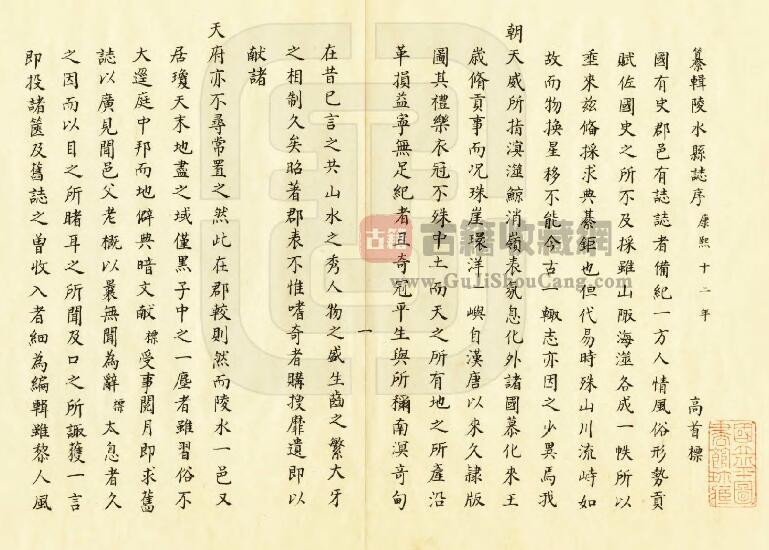 纂輯陵水縣誌序 康熙十二年 高首標
國有史郡邑有誌誌者備紀一方人情風俗形勢貢
賦佐國史之所不及採雖山陬海澨各成一帙所以
垂來玆脩採求典綦鉅也但代易時殊山川流峙如
故而物換星移不能今古一轍志亦因之少異焉我
朝天威所指滇澨鯨消嶺表氛息化外諸國慕化來王
歲脩貢事而况珠崖環洋一嶼自漢唐以來久隷版
圖其禮樂衣冠不殊中土而天之所有地之所產沿
革損益寧無足紀者且奇冠平生與所稱南溟奇甸
一
在昔已言之共山水之秀人物之盛生齒之繁犬牙
之相制久矣昭著郡表不惟嗜奇者購搜靡遺即以
獻諸
天府亦不尋常置之然此在郡較則然而陵水一邑又
居瓊天末地盡之域僅黑子中之一塵者雖習俗不
大遥庭中邦而地僻典暗文献標受事閱月即求舊
誌以廣見聞邑父老概以曩無聞為辭標太息者久
之因而以目之所睹耳之所聞及口之所諏獲一言
即投諸篋及舊誌之曽收入者細為編輯雖黎人風
古籍 古籍收藏网
www.GuJiShouCang.com